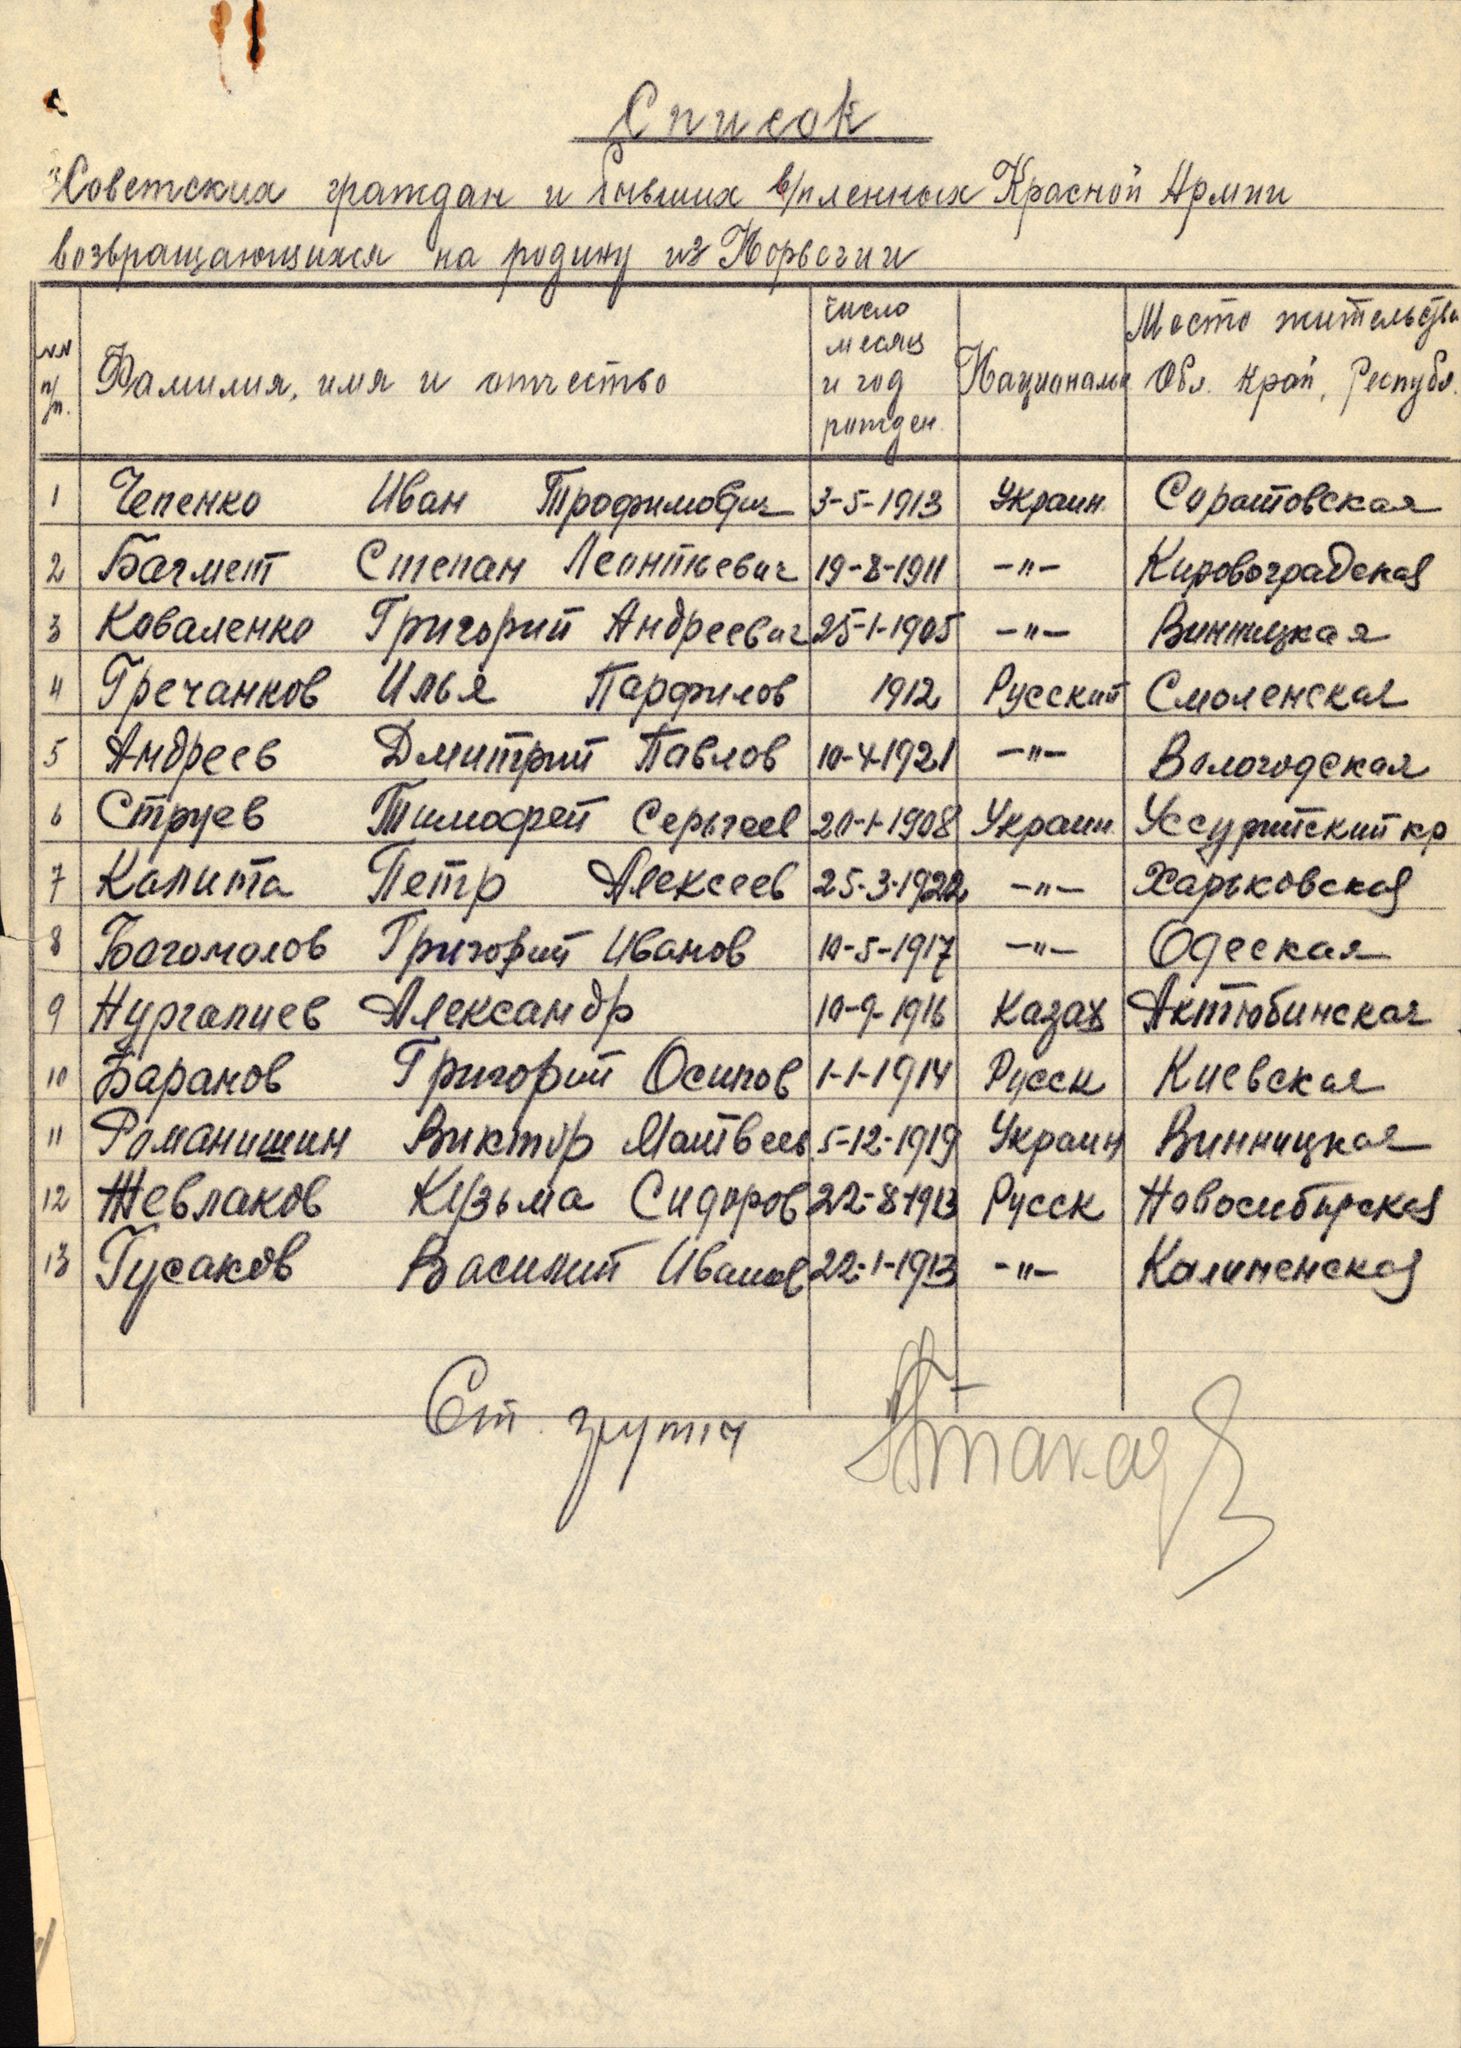 Список
Советских граждан и бывших в/пленных Красной Армии
возвращающихся на родину из Норвегии
NN п/п. Фамилия, имя и отчество число месяц и год рожден. Националь Место жительства Обл. край, Республ.
1 Чепенко Иван Трофимович 3-5-1913 Украин. Саратовская
2 Багмет Степан Леонтьевич 19-8-1911 -"- Кировоградская
3 Коваленко Григорий Андреевич 25-1-1905 -"- Винницкая
4 Гречанков Илья Парфилов 1912 Русский Смоленская
5 Андреев Дмитрий Павлов 10-4-1921 -"- Вологодская
6 Струев Тимофей Серьгеев 20-1-1908 Украин. Уссурийский кр
7 Калита Петр Алексеев 25-3-1922 -"- Харьковская
8 Богомолов Григорий Иванов 10-5-1917 -"- Одеская
9 Нургалиев Александр 10-9-1916 Казах Актюбинская
10 Баранов Григорий Осипов 1-1-1914 Русск Киевская
11 Романишин Виктор Матвеев 5-12-1919 Украин Винницкая
12 Жевлаков Кузьма Сидоров 22-8-1913 Русск Новосибирская
13 Гусаков Василий Иванов 22-1-1913 -"- Калиненская
Ст. групы